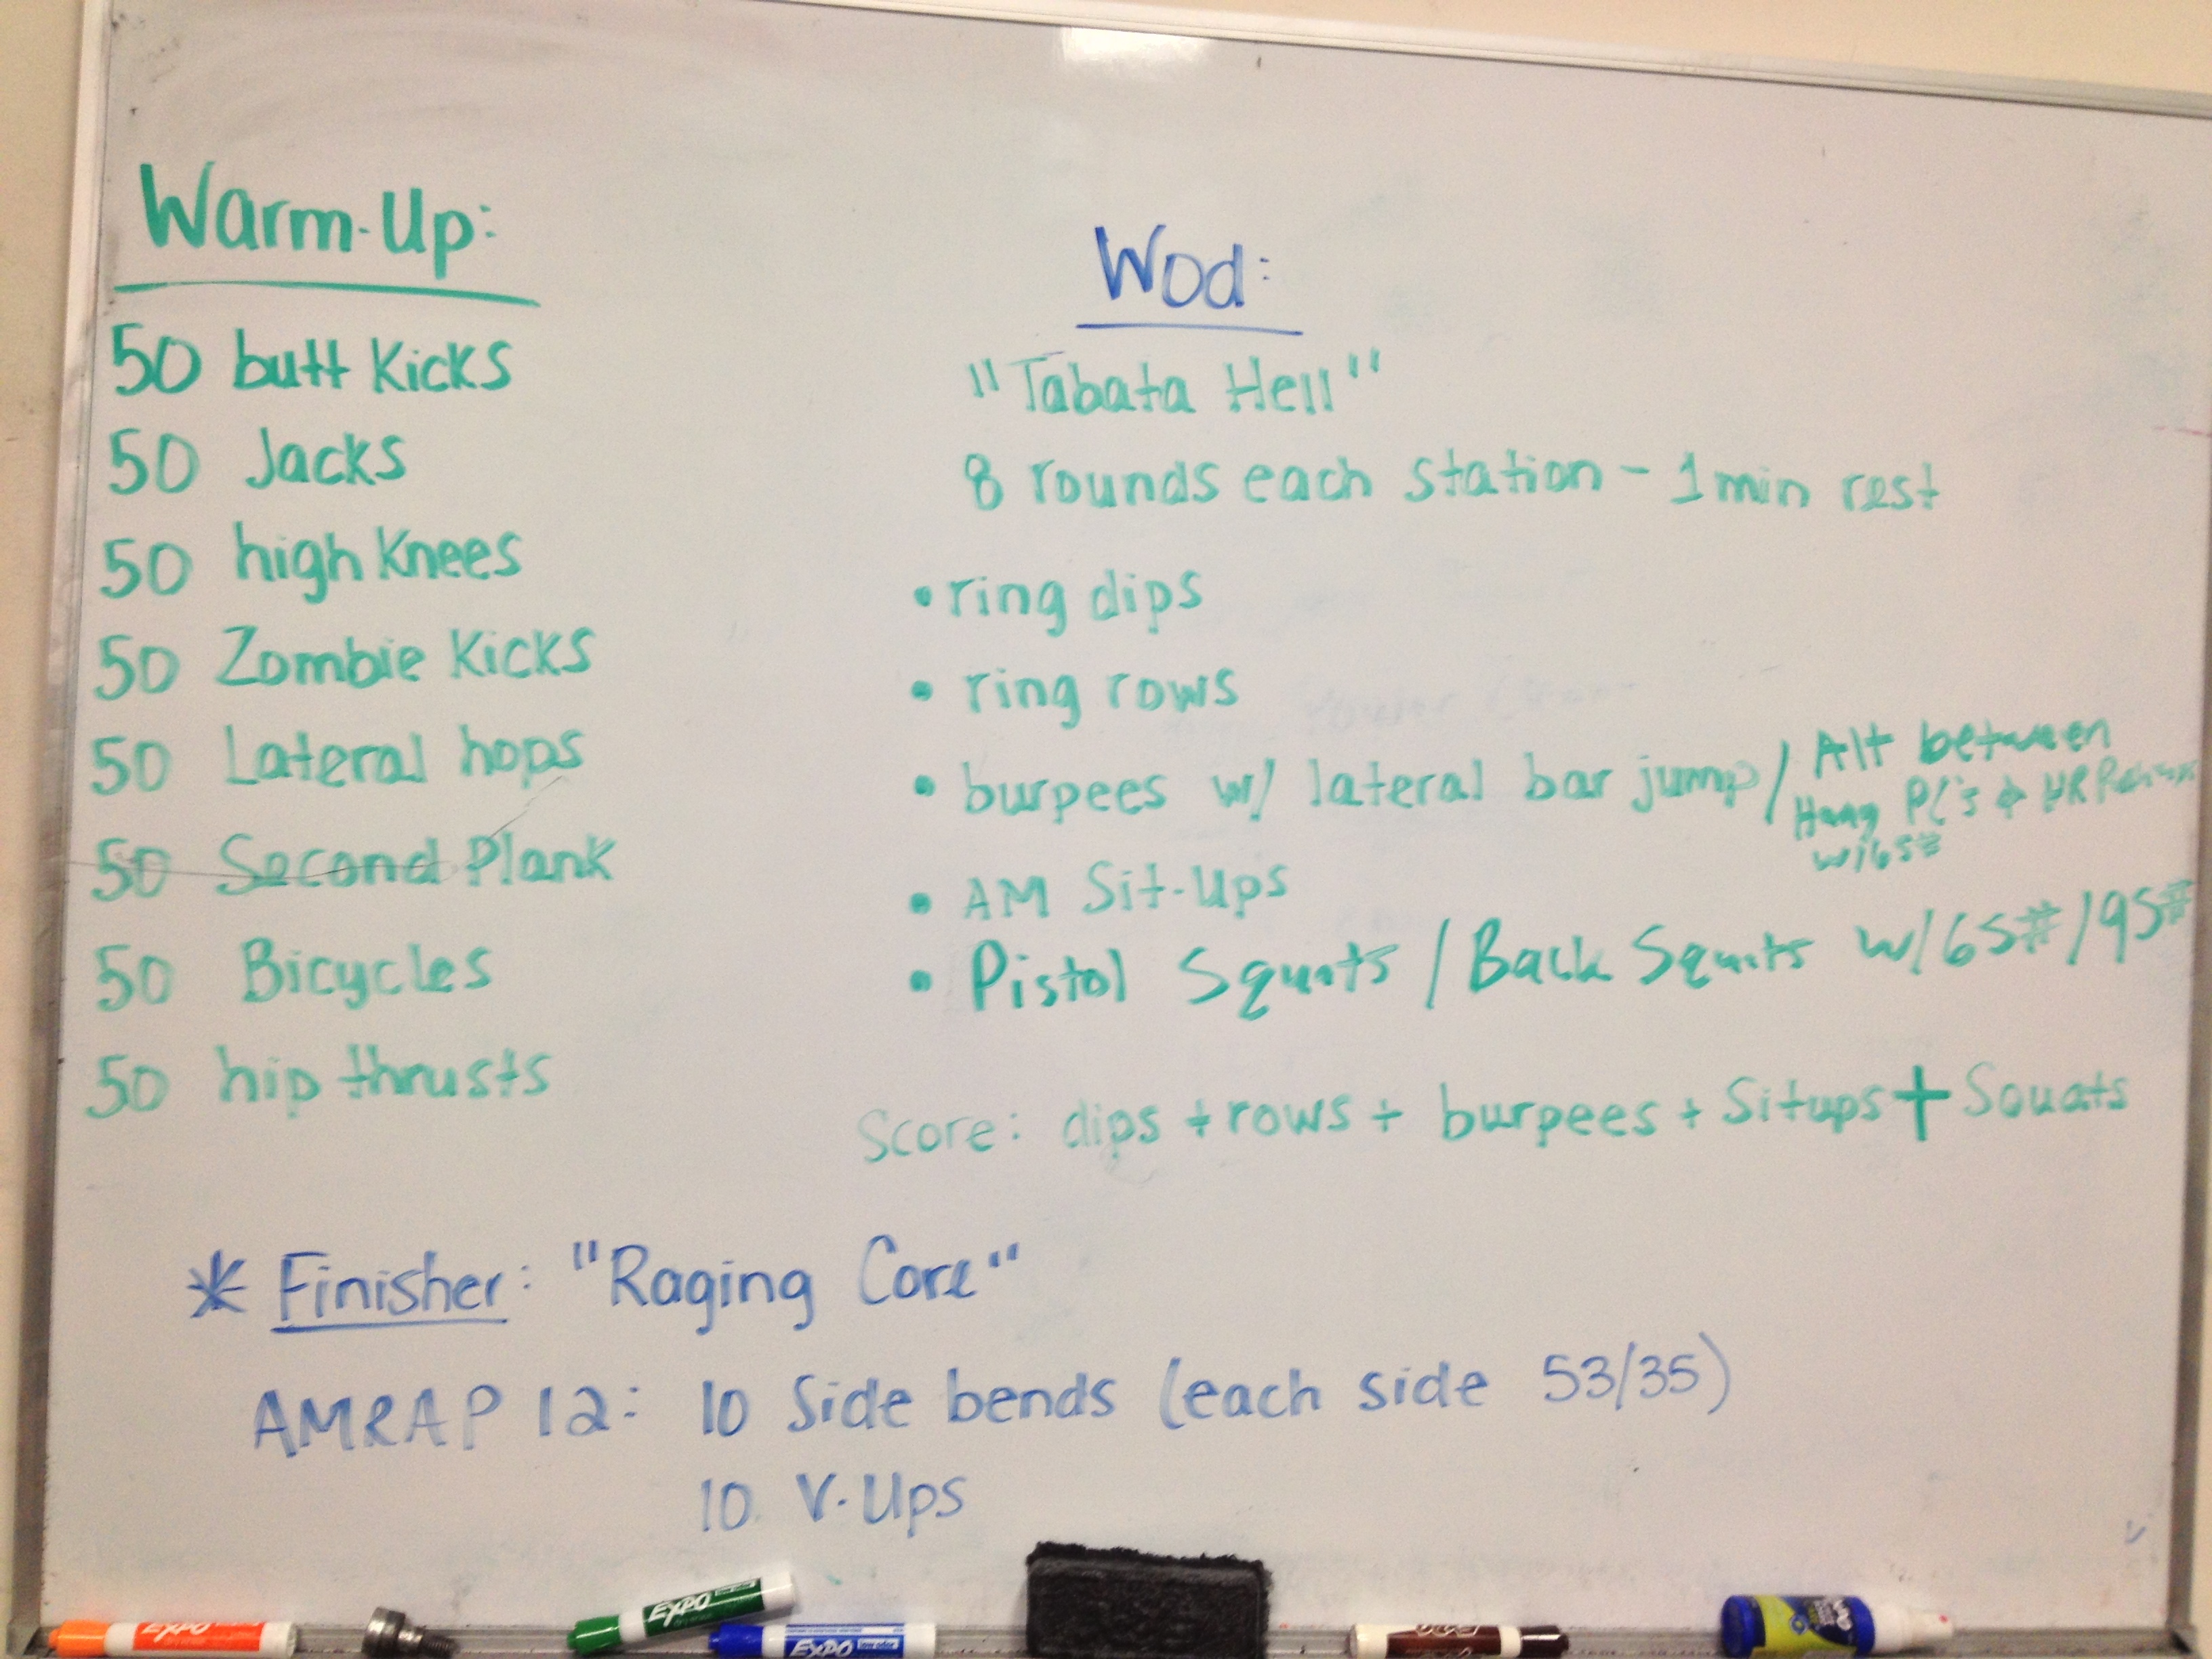 Warm-Up:
50 butt Kicks
50 Jacks
50 high Knees
50 Zombie Kicks
50 Lateral hops
50 Second Plank
50 Bicycles
50 hip thrusts
Wod:
"Tabata Hell"
8 rounds each station - 1 min rest
• ring dips
• ring rows
• burpees w/ lateral bar jump / Alt between
Hang PC's & HR
w/65#
• AM Sit-Ups
• Pistol Squats / Back Squats w/65#/95#
Score: dips + rows + burpees + Situps + Squats
* Finisher: "Raging Core"
AMRAP 12: 10 Side bends (each side 53/35)
10 V-Ups
EXPO
EXPO
EXPO low odor